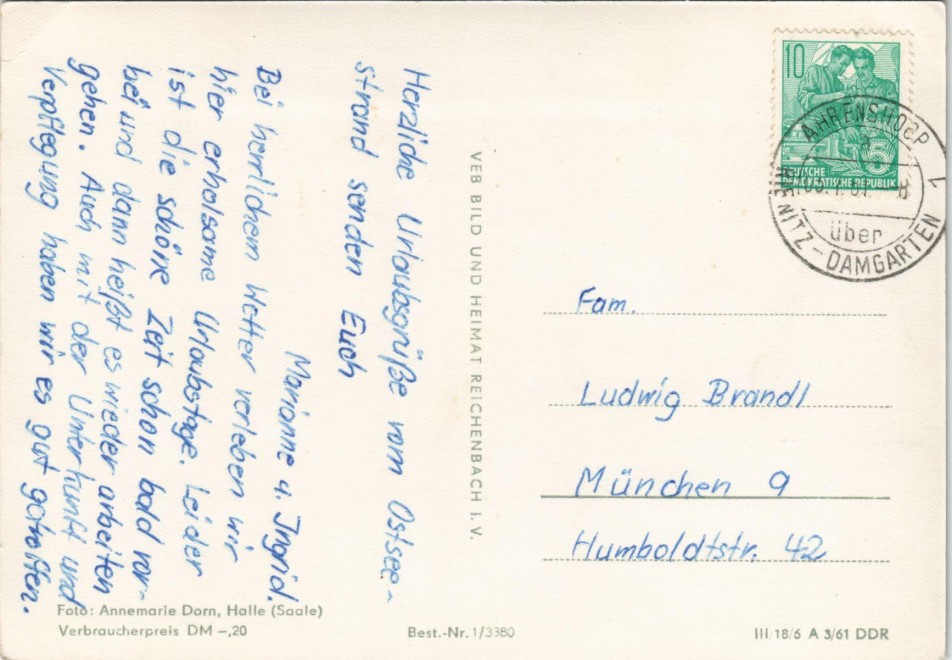 Herzliche Urlaubsgrüße vom Ostsee-
strand senden Euch
Marianne u. Ingrid.
Bei herrlichem Wetter verleben wir
hier erholsame Urlaubstage. Leider
ist die schöne Zeit schon bald vor-
bei und dann heißt es wieder arbeiten
gehen. Auch mit der Unterkunft und
Verpflegung haben wir es gut getroffen.
VEB BILD UND HEIMAT REICHENBACH i. V.
10
5
DEUTSCHE
DEMOKRATISCHE REPUBLIK
AHRENSHOOP
über
NITZ-DAMGARTEN 1
Fam.
Ludwig Brandl
München 9
Humboldtstr. 42
Foto: Annemarie Dorn, Halle (Saale)
Verbraucherpreis DM -,20
Best.-Nr. 1/3380
III/18/6 A 3/61 DDR